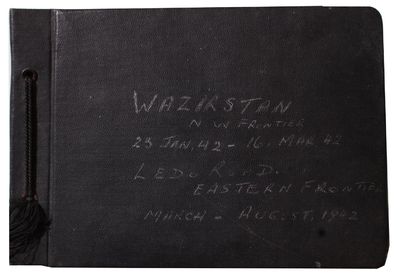 WAZIRSTAN
N W FRONTIER
23 JAN, 42 - 16, MAR 42
LEDO ROAD.
EASTERN FRONTIER
MARCH - AUGUST, 1942